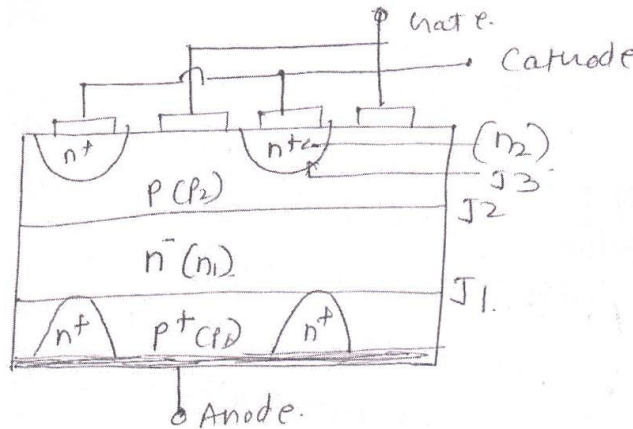 Gate.
Cathode
n+ n+ (n2)
J3
p(p2)
J2
n-(n1)
J1.
n+ p+(p1) n+
Anode.